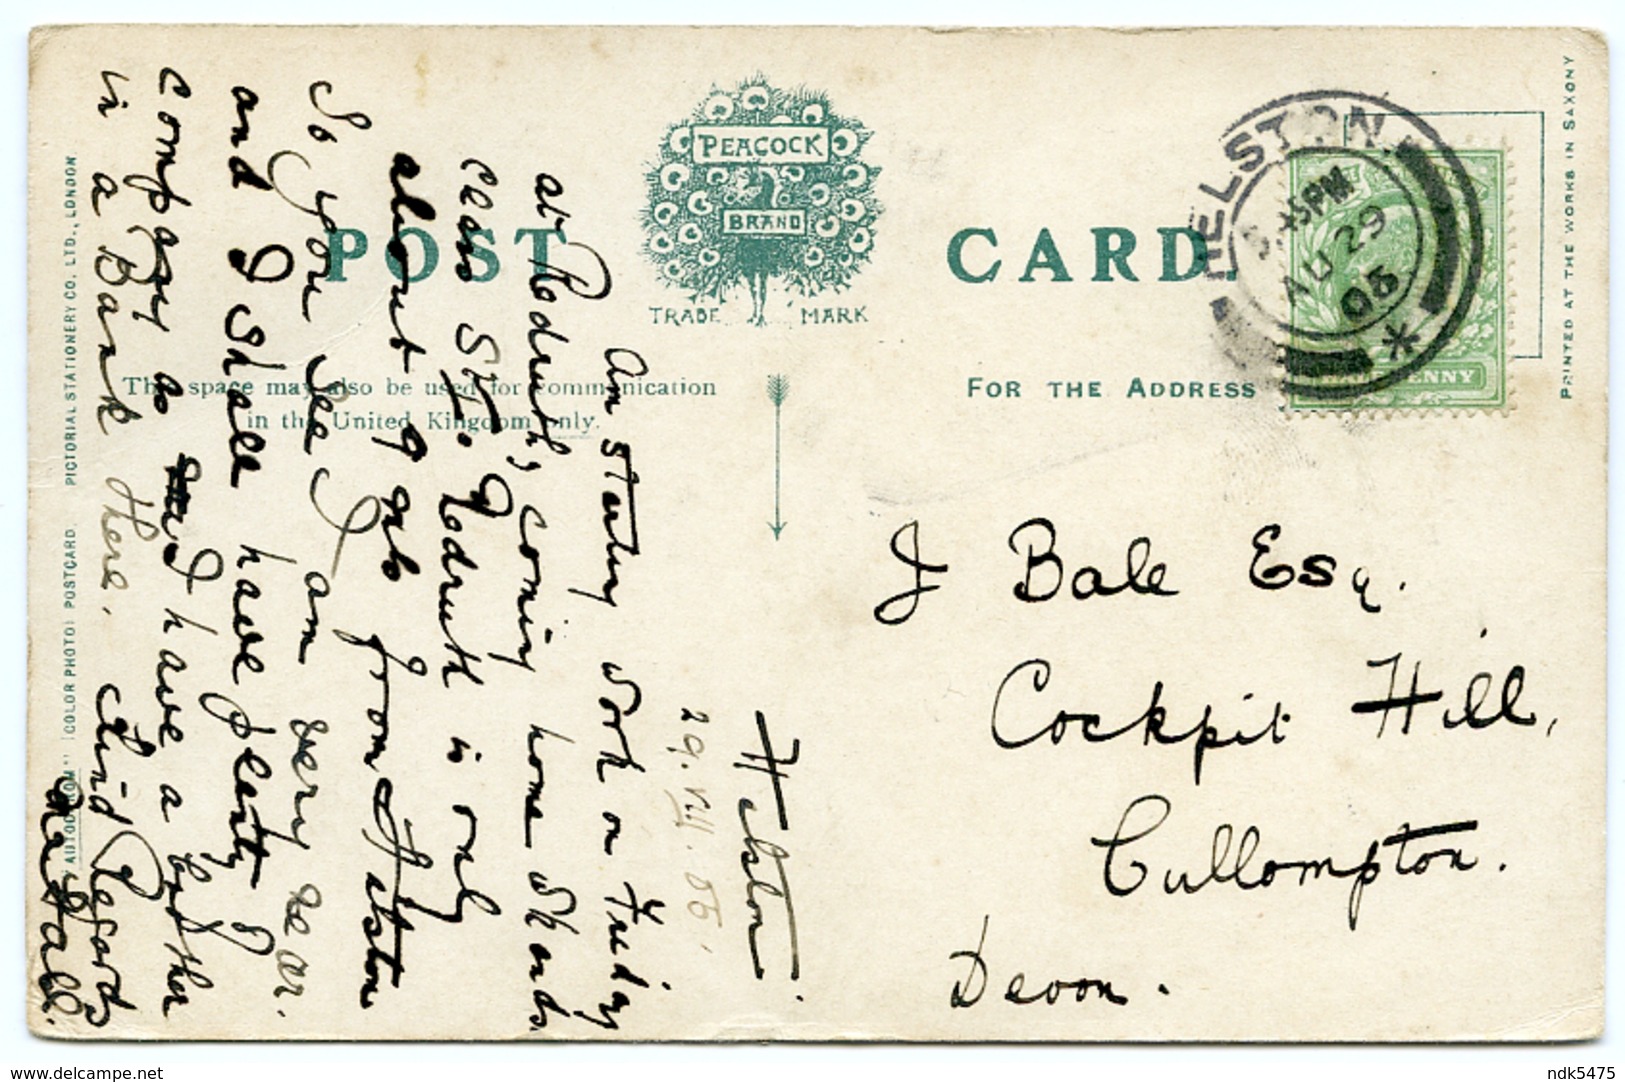 POST CARD
PEACOCK
BRAND
TRADE MARK
This space may also be used for communication
in the United Kingdom only.
FOR THE ADDRESS
HELSTON
45PM
AU 29
05
PENNY
PRINTED AT THE WORKS IN SAXONY
"AUTOCHROM" (COLOR PHOTO) POSTCARD PICTORIAL STATIONERY CO. LTD., LONDON
Helston
29.VIII.05
Am starting work on Friday
at Redruth, coming home
Cross St. Redruth is only
about 9 mls from Helston
So you see I am very near.
and I shall have plenty of
Company as I have a brother
in a Bank there. Kind Regards
J Bale Esq.
Cockpit Hill,
Cullompton.
Devon.
ndk5475
www.delcampe.net